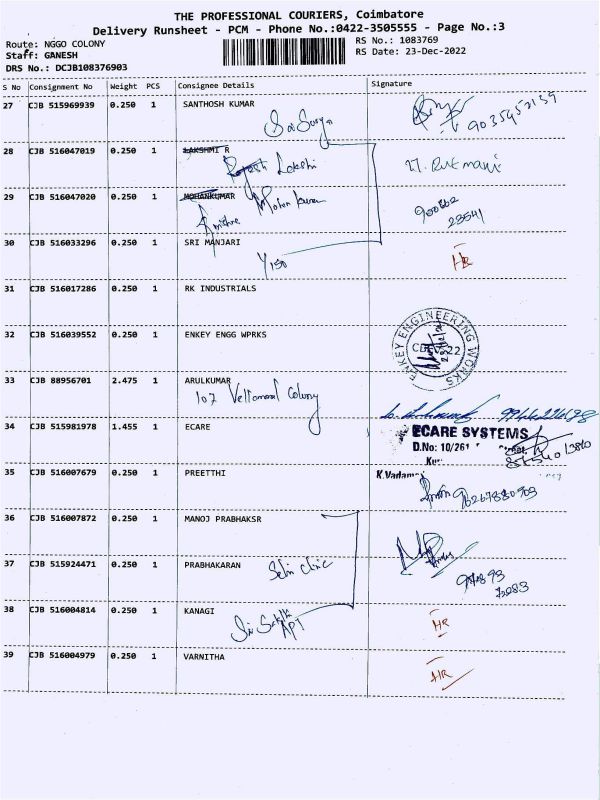 THE PROFESSIONAL COURIERS, Coimbatore
Delivery Runsheet - PCM - Phone No.:0422-3505555 - Page No.:3
Route: NGGO COLONY RS No.: 1083769
Staff: GANESH RS Date: 23-Dec-2022
DRS No.: DCJB108376903
S No Consignment No Weight PCS Consignee Details Signature
27 CJB 515969939 0.250 1 SANTHOSH KUMAR
Sai Surya
28 CJB 516047019 0.250 1 LAKSHMI R
Lakshi
29 CJB 516047020 0.250 1 MOHANKUMAR
Mohan Kumar
30 CJB 516033296 0.250 1 SRI MANJARI
HR
31 CJB 516017286 0.250 1 RK INDUSTRIALS
32 CJB 516039552 0.250 1 ENKEY ENGG WPRKS
ENKEY ENGINEERING WORKS
33 CJB 88956701 2.475 1 ARULKUMAR
107 Colony
34 CJB 515981978 1.455 1 ECARE
ECARE SYSTEMS
D.No: 10/261
35 CJB 516007679 0.250 1 PREETTHI
K.Vadama
36 CJB 516007872 0.250 1 MANOJ PRABHAKSR
37 CJB 515924471 0.250 1 PRABHAKARAN
Selvi clinic
38 CJB 516004814 0.250 1 KANAGI
HR
39 CJB 516004979 0.250 1 VARNITHA
HR